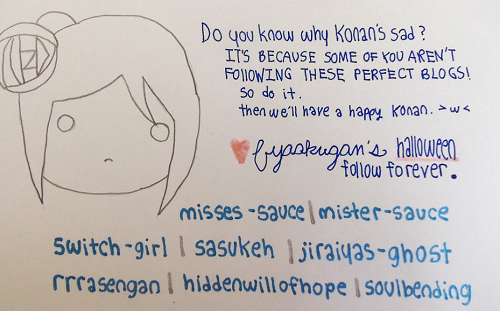 Do you know why Konan's sad?
IT'S BECAUSE SOME OF YOU AREN'T
FOllOWING THESE PERFECT BLOGS!
So do it.
then we'll have a happy Konan. >w<
byaakugan's halloween
follow forever.
misses-sauce | mister-sauce
switch-girl | sasukeh | jiraiyas-ghost
rrrasengan | hiddenwillofhope | soulbending